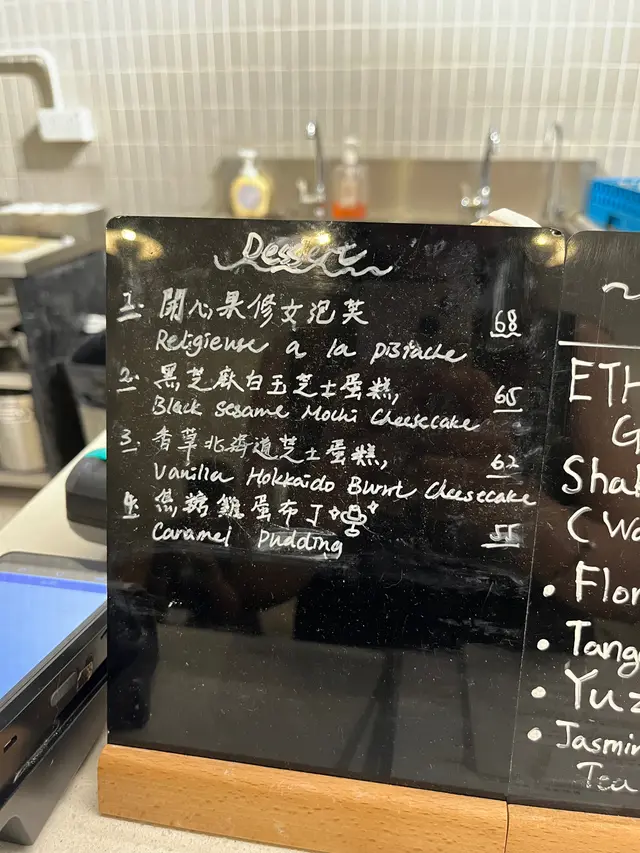 Dessert
1. 開心果修女泡芙 68
Religieuse a la pistache
2. 黑芝麻白玉芝士蛋糕, 65
Black Sesame Mochi Cheesecake
3. 香草北海道芝士蛋糕, 62
Vanilla Hokkaido Burnt Cheesecake
4. 焦糖雞蛋布丁 55
Caramel Pudding
ETH
G
Sha
(Wa
• Flor
• Tang
• Yuz
• Jasmin
Tea